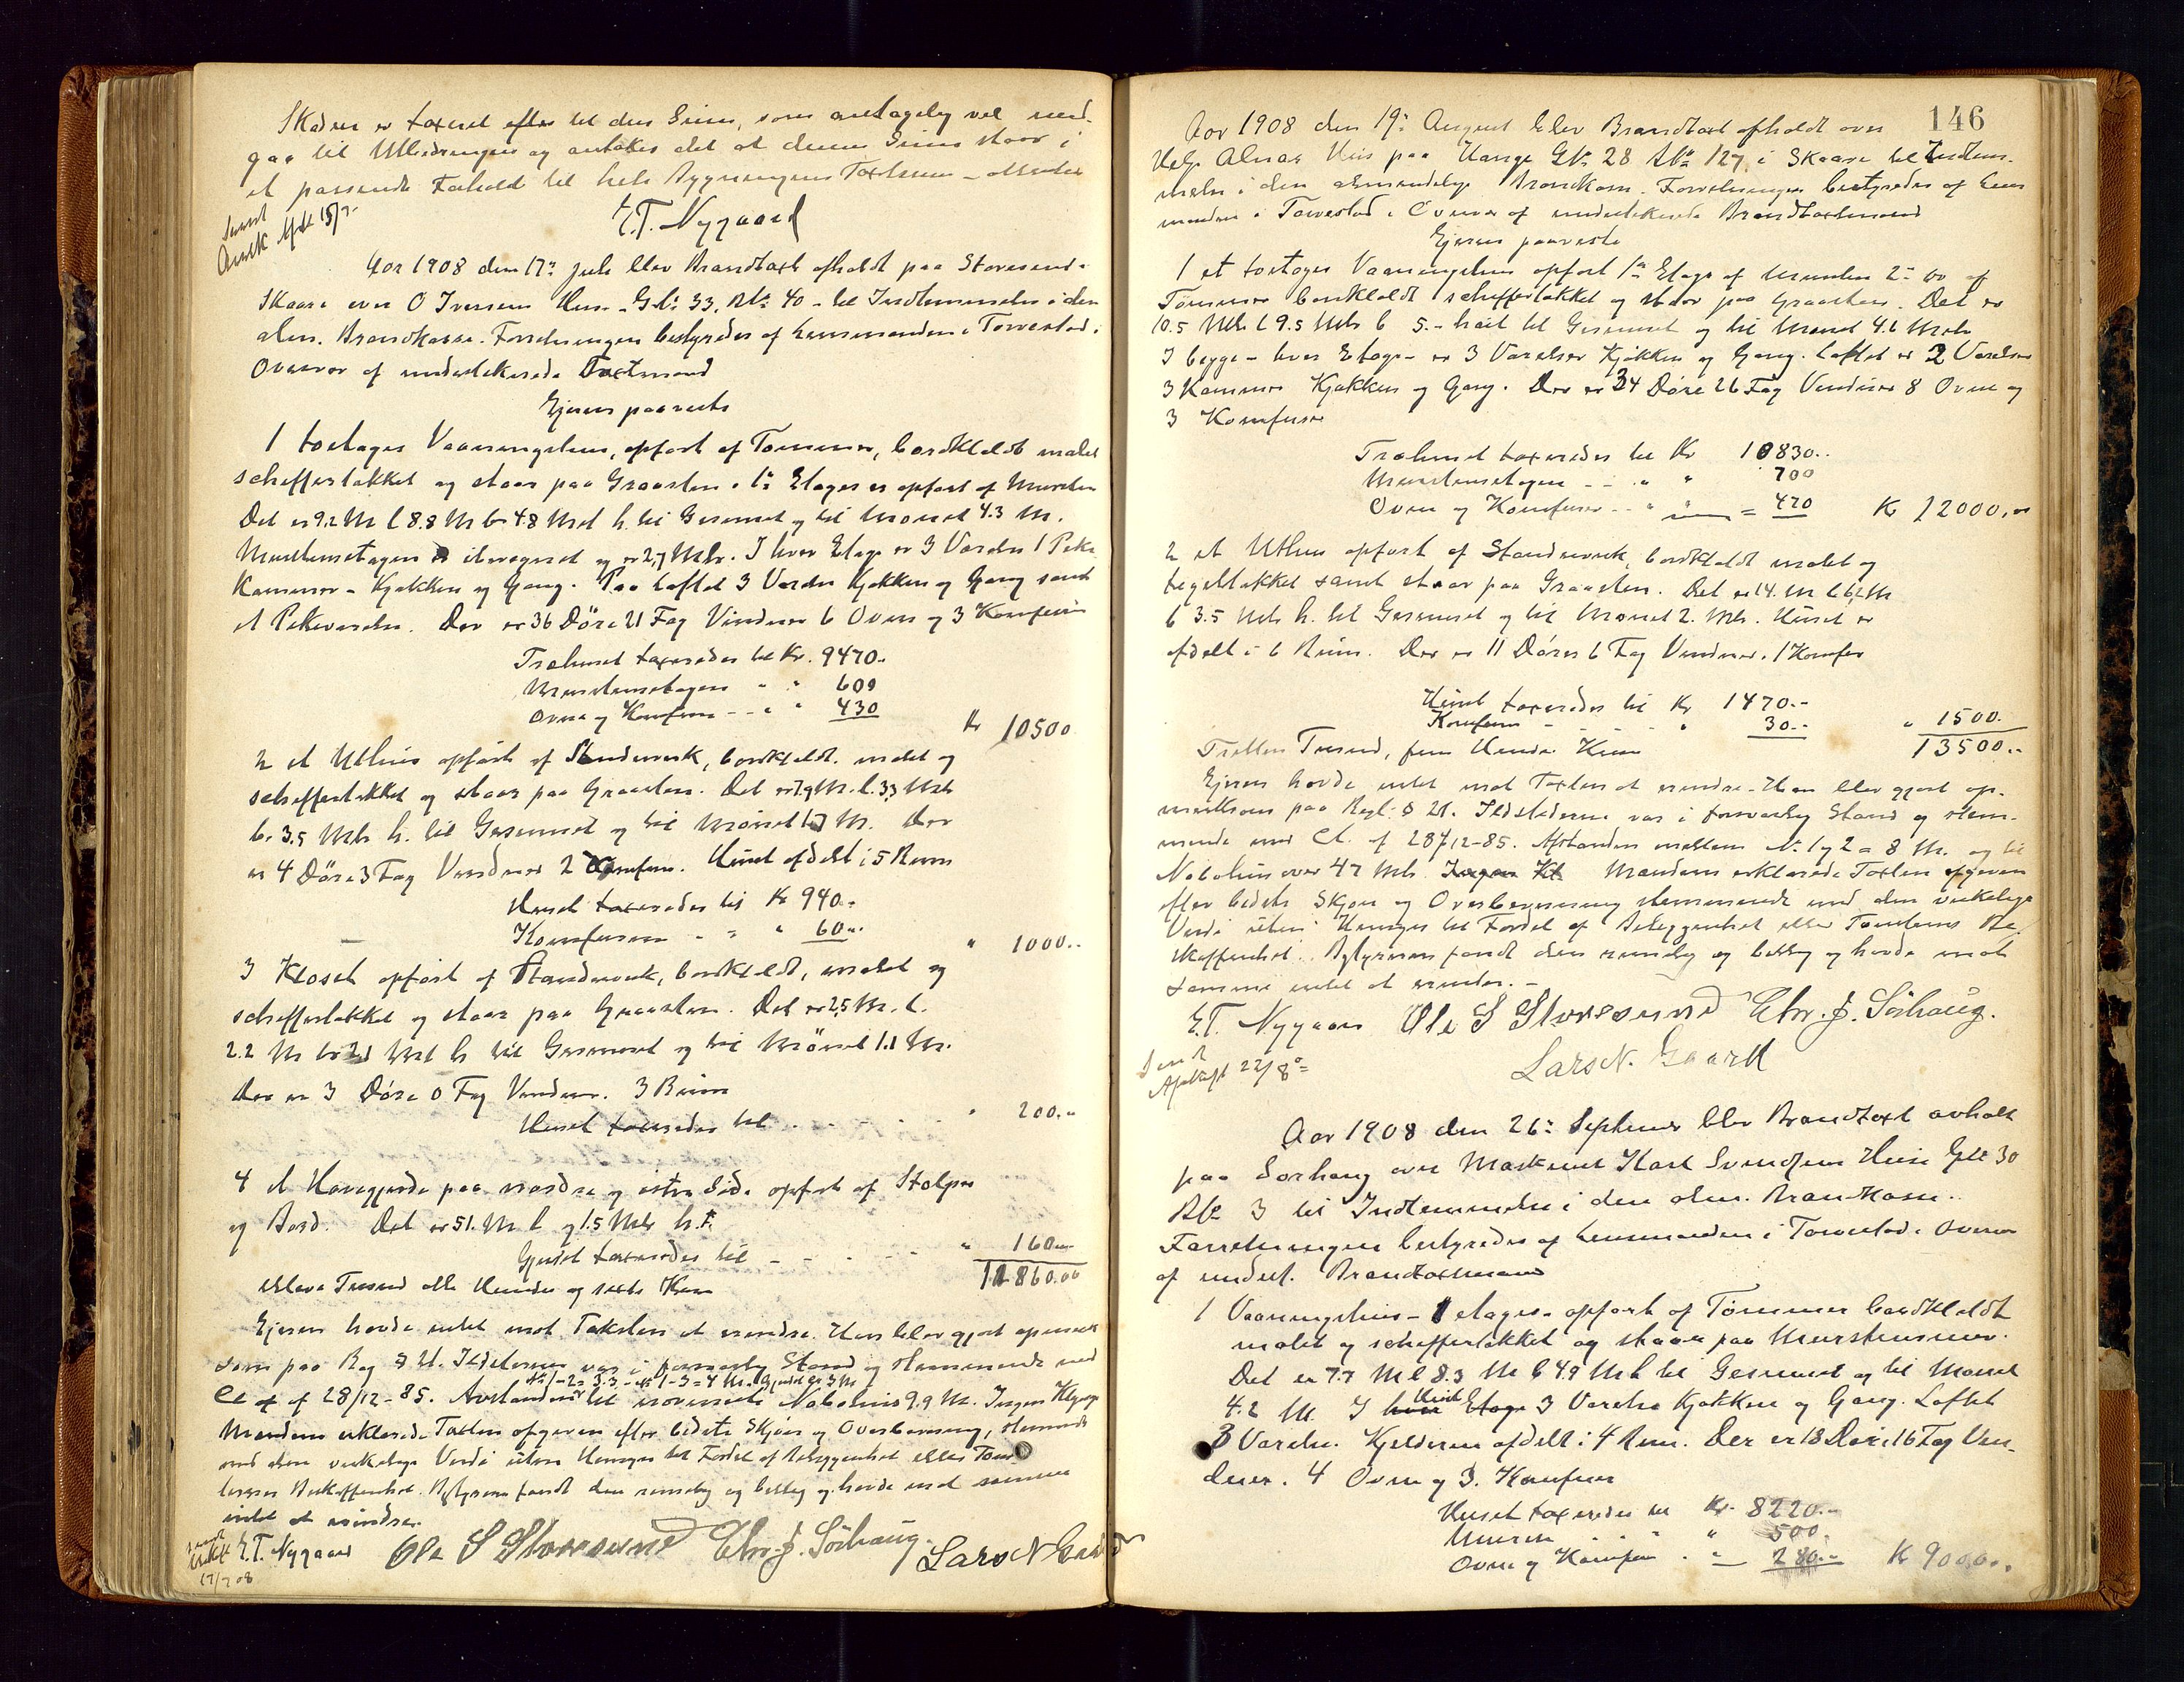 Skaden er taxeret efter til den Sum, som antagelig vil med-
gaa til Udbedringen og antakes det at denne Sum staar i
et passende Forhold til hele Bygningens Taxtsum - attesteres
E.T. Nygaard
Sendt
Avsk 18/7-
Aar 1908 den 17de Juli blev Brandtaxt afholdt paa Storesund i
Skaare over O Iversens Hus - Gb: 33, Bk: 40 - til Indlemmelse i den
alm. Brandkasse. Forretningen bestyredes af Lensmanden i Torvestad i
Overvær af underteknede Taxtmænd
Ejeren paaviste
1 toetages Vaaningshus, opført af Tømmer, bordklædt malet
schiffertækket og staar paa Graasten. 1ste Etages er opført af Mursten
Det er 9.2 M l 8.8 M b 4.8 Met h. til Gesimset og til Mønet 4.3 M.
Murstensetagen er iberegnet og er 2,7 Mtr. I hver Etage er 3 Værelser 1 Pike
Kammer - Kjøkken og Gang. Paa Loftet 3 Værelser Kjøkken og Gang samt
et Pikeværelse. Der er 36 Døre 21 Fag Vinduer 6 Ovne og 3 Komfurer
Træhuset taxeredes til Kr. 9470.-
Murstensetagen - " 600
Ovne og Komfurer - - " " 430
Kr 10500
2 et Uthus opført af Standverk, bordklædt. malet og
schiffertækket og staar paa Graasten. Det er 7.9 M. l. 3,3 Mtr
b. 3.5 Mtr h. til Gesimset og til Mønet 1.7 M. Der
er 4 Døre 3 Fag Vinduer 2 Komfurer. Huset afdelt i 5 Rum
Huset taxeredes til Kr 940.-
Komfurerne - - " 60.-
" 1000.-
3 Kloset opført af Standverk, bordklædt, malet og
schiffertækket og staar paa Graasten. Det er 2,5 M. l.
2.2 M b 2.1 Met h til Gesimset og til Mønet 1.1 M.
Der er 3 Døre 0 Fag Vinduer. 3 Rum
Huset taxeredes til - - - " 200.-
4 et Havegjerde paa nordre og østre Side opført af Stolper
og Bord. Det er 51. M l og 1.5 Mtr h.
Gjerdet taxeredes til - - - - " 160
11860.00
elleve Tusend otte Hundre og seksti Kr
Ejeren havde intet mod Taksten at erindre. Han blev gjort opmerk
som paa Reg § 21. Ildstederne var i forsvarlig Stand og stemmende med
No 1-2 = 3.3 - No 1-3 = 4 M. Gjerdet er 3 M
Ct af 28/12-85. Avstanden til nærmeste Nabohus 9.9 M. Ingen
Mændene erklærede Taxten afgiven efter bedste Skjøn og Overbevisning, stemmende
med den virkelige Verdi uten Hensyn til Fordel af Beliggenhet eller Tom
terens Beskaffenhet. Bestyreren fandt den rimelig og billig og havde mod samme
intet at erindre.
Sendt
Avskft
17/7 08
E.T. Nygaard Ole S Storesund Chr. J. Sørhaug. Lars N Gaard
146
Aar 1908 den 19de August blev Brandtaxt afholdt over
Helge Alnas Hus paa Hauge Gb: 28 Bk: 127 i Skaare til Indlem-
melse i den almindelige Brandkasse. Forretningen bestyredes af Lens
manden i Torvestad i Overvær af undertekende Brandtaxtmænd
Ejeren paaviste
1 et toetages Vaaningshus opført 1ste Etage af Mursten 2de do af
Tømmer bordklædt schiffertækket og staar paa Graasten. Det er
10.5 Mtr l 9.5 Mtr b 5.- høit til Gesimset og til Mønet 4.6 Mtr
I begge - hver Etage - er 3 Værelser Kjøkken og Gang. Loftet er 2 Værelser
3 Kammer Kjøkken og Gang. Der er 34 Døre 26 Fag Vinduer 8 Ovne og
3 Komfurer
Træhuset taxeredes til Kr 10830.-
Murstensetagen - - " " 700
Ovne og Komfurer - - " " = 470 Kr 12000,00
2 et Uthus opført af Standverk, bordklædt malet og
tegeltækket samt staar paa Graasten. Det er 14. M l 6,2 M
b 3.5 Mtr h. til Gesimset og til Mønet 2. Mtr. Huset er
afdelt i 6 Rum. Der er 11 Døre 6 Fag Vinduer. 1 Komfur
Huset taxeredes til Kr 1470.-
Komfuren - - - " 30.-
" 1500.
Tretten Tusend, fem Hundre Kroner 13500.-
Ejeren havde intet mod Taxten at erindre. Han blev gjort op-
merksom paa Regl. § 21. Ildstederne var i forsvarlig Stand og stem-
mende med Ct. af 28/12-85. Afstanden mellem No 1 og 2 = 8 M. og til
Nabohus over 47 Mtr. Ingen Kl. Mændene erklærede Taxten afgiven
efter bedste Skjøn og Overbevisning stemmende med den virkelige
Verdi uten Hensyn til Fordel af Beliggenhet eller Tomtens Be
skaffenhet. Bestyreren fandt den rimelig og billig og havde mot
samme intet at erindre. -
E.T. Nygaard Ole S Storesund Chr. J. Sörhaug.
Lars N. Gaard
Sendt
Afskrift 22/8
Aar 1908 den 26de September blev Brandtaxt avholdt
paa Sørhaug over Maskinist Karl Svendsens Hus Gb: 30
Bk 3 til Indlemmelse i den alm. Brandkasse.
Forretningen bestyredes af Lensmanden i Torvestad i Overvær
af undert. Brandtaxtmænd
1 Vaaningshus - 1 etages - opført af Tømmer bordklædt
malet og schiffertækket og staar paa Murstensmur.
Det er 7.7 M l 8.3 M b 4.9 M h til Gesimset og til Mønet
4.2 M. I hver Huset Etage 3 Værelser Kjøkken og Gang. Loftet
3 Værelser. Kjelderen afdelt i 4 Rum. Der er 18 Døre, 16 Fag Vin-
duer. 4 Ovne og 3. Komfurer
Huset taxeredes til Kr. 8220.-
Muren - - - " 500.
Ovne og Komfurer - " 280.- Kr 9000.-